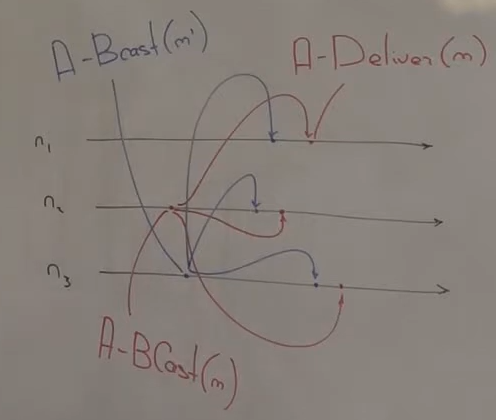 A-Bcast(m')
A-Deliver(m)
n₁
n₂
n₃
A-BCast(m)